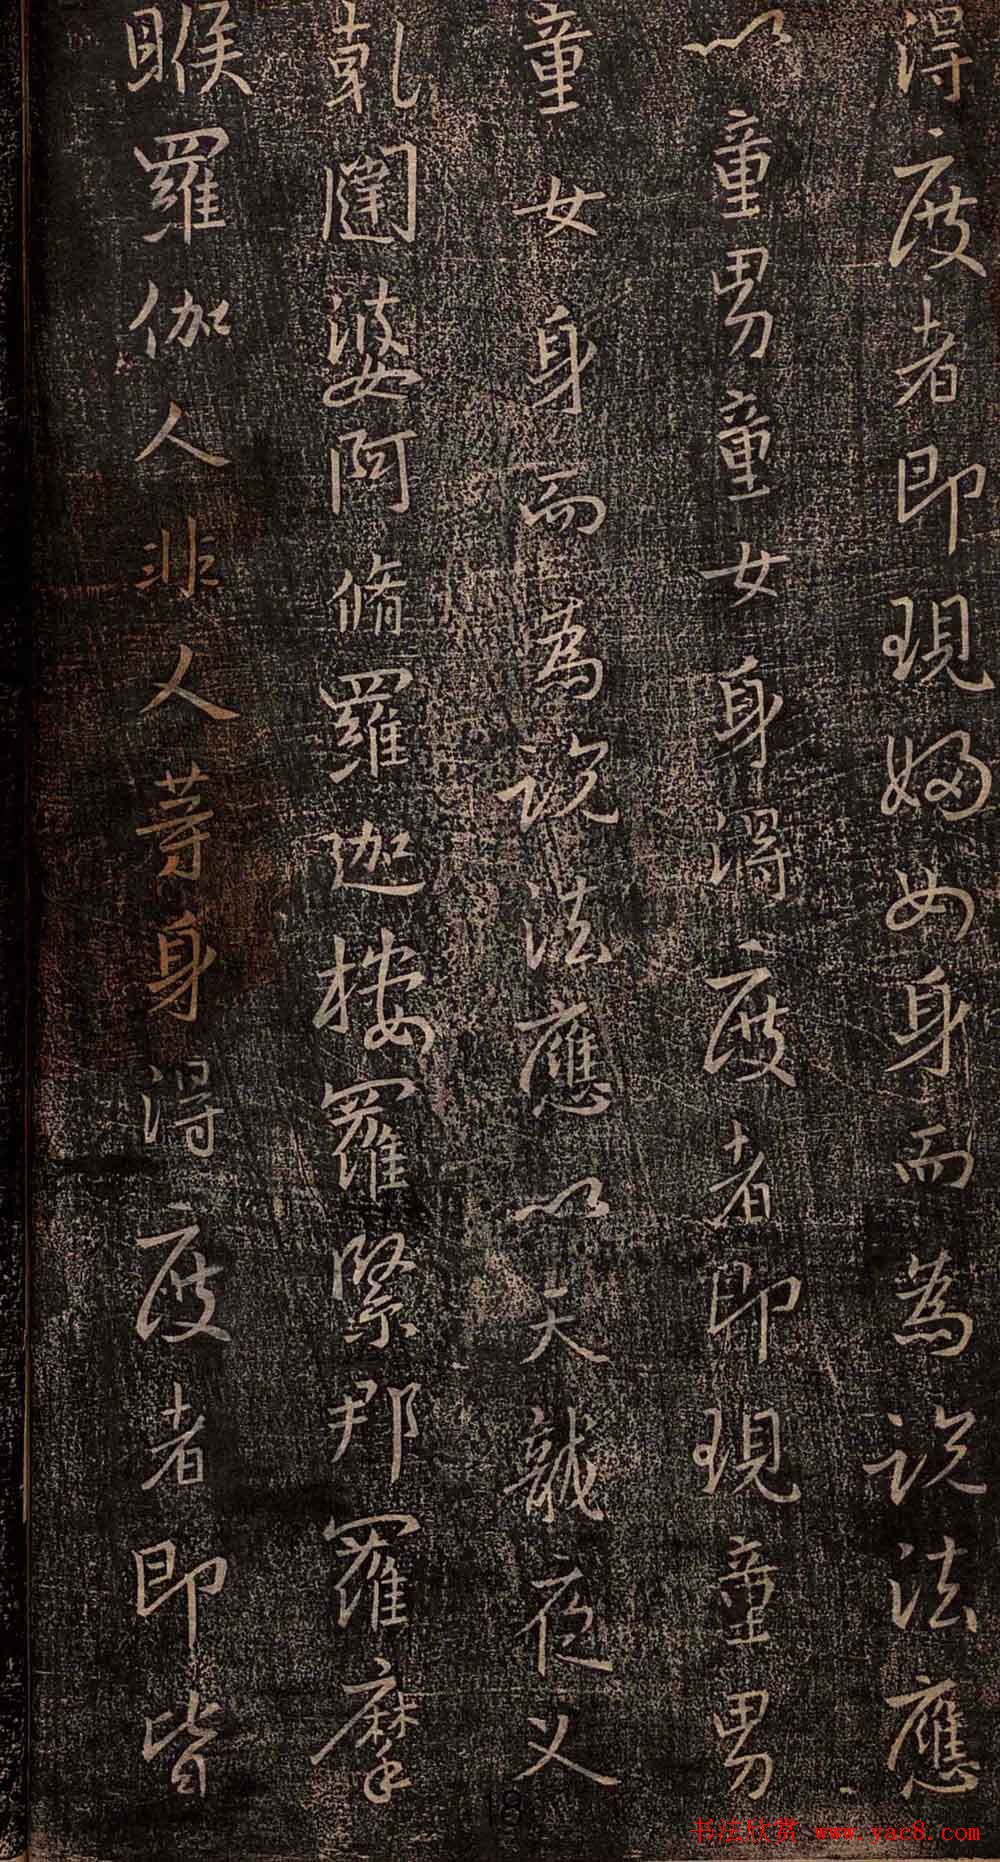 得度者即現婦女身而為說法應
以童男童女身得度者即現童男
童女身而為說法應以天龍夜叉
乾闥婆阿脩羅迦樓羅緊那羅摩
睺羅伽人非人等身得度者即皆
18
书法欣赏 www.yac8.com